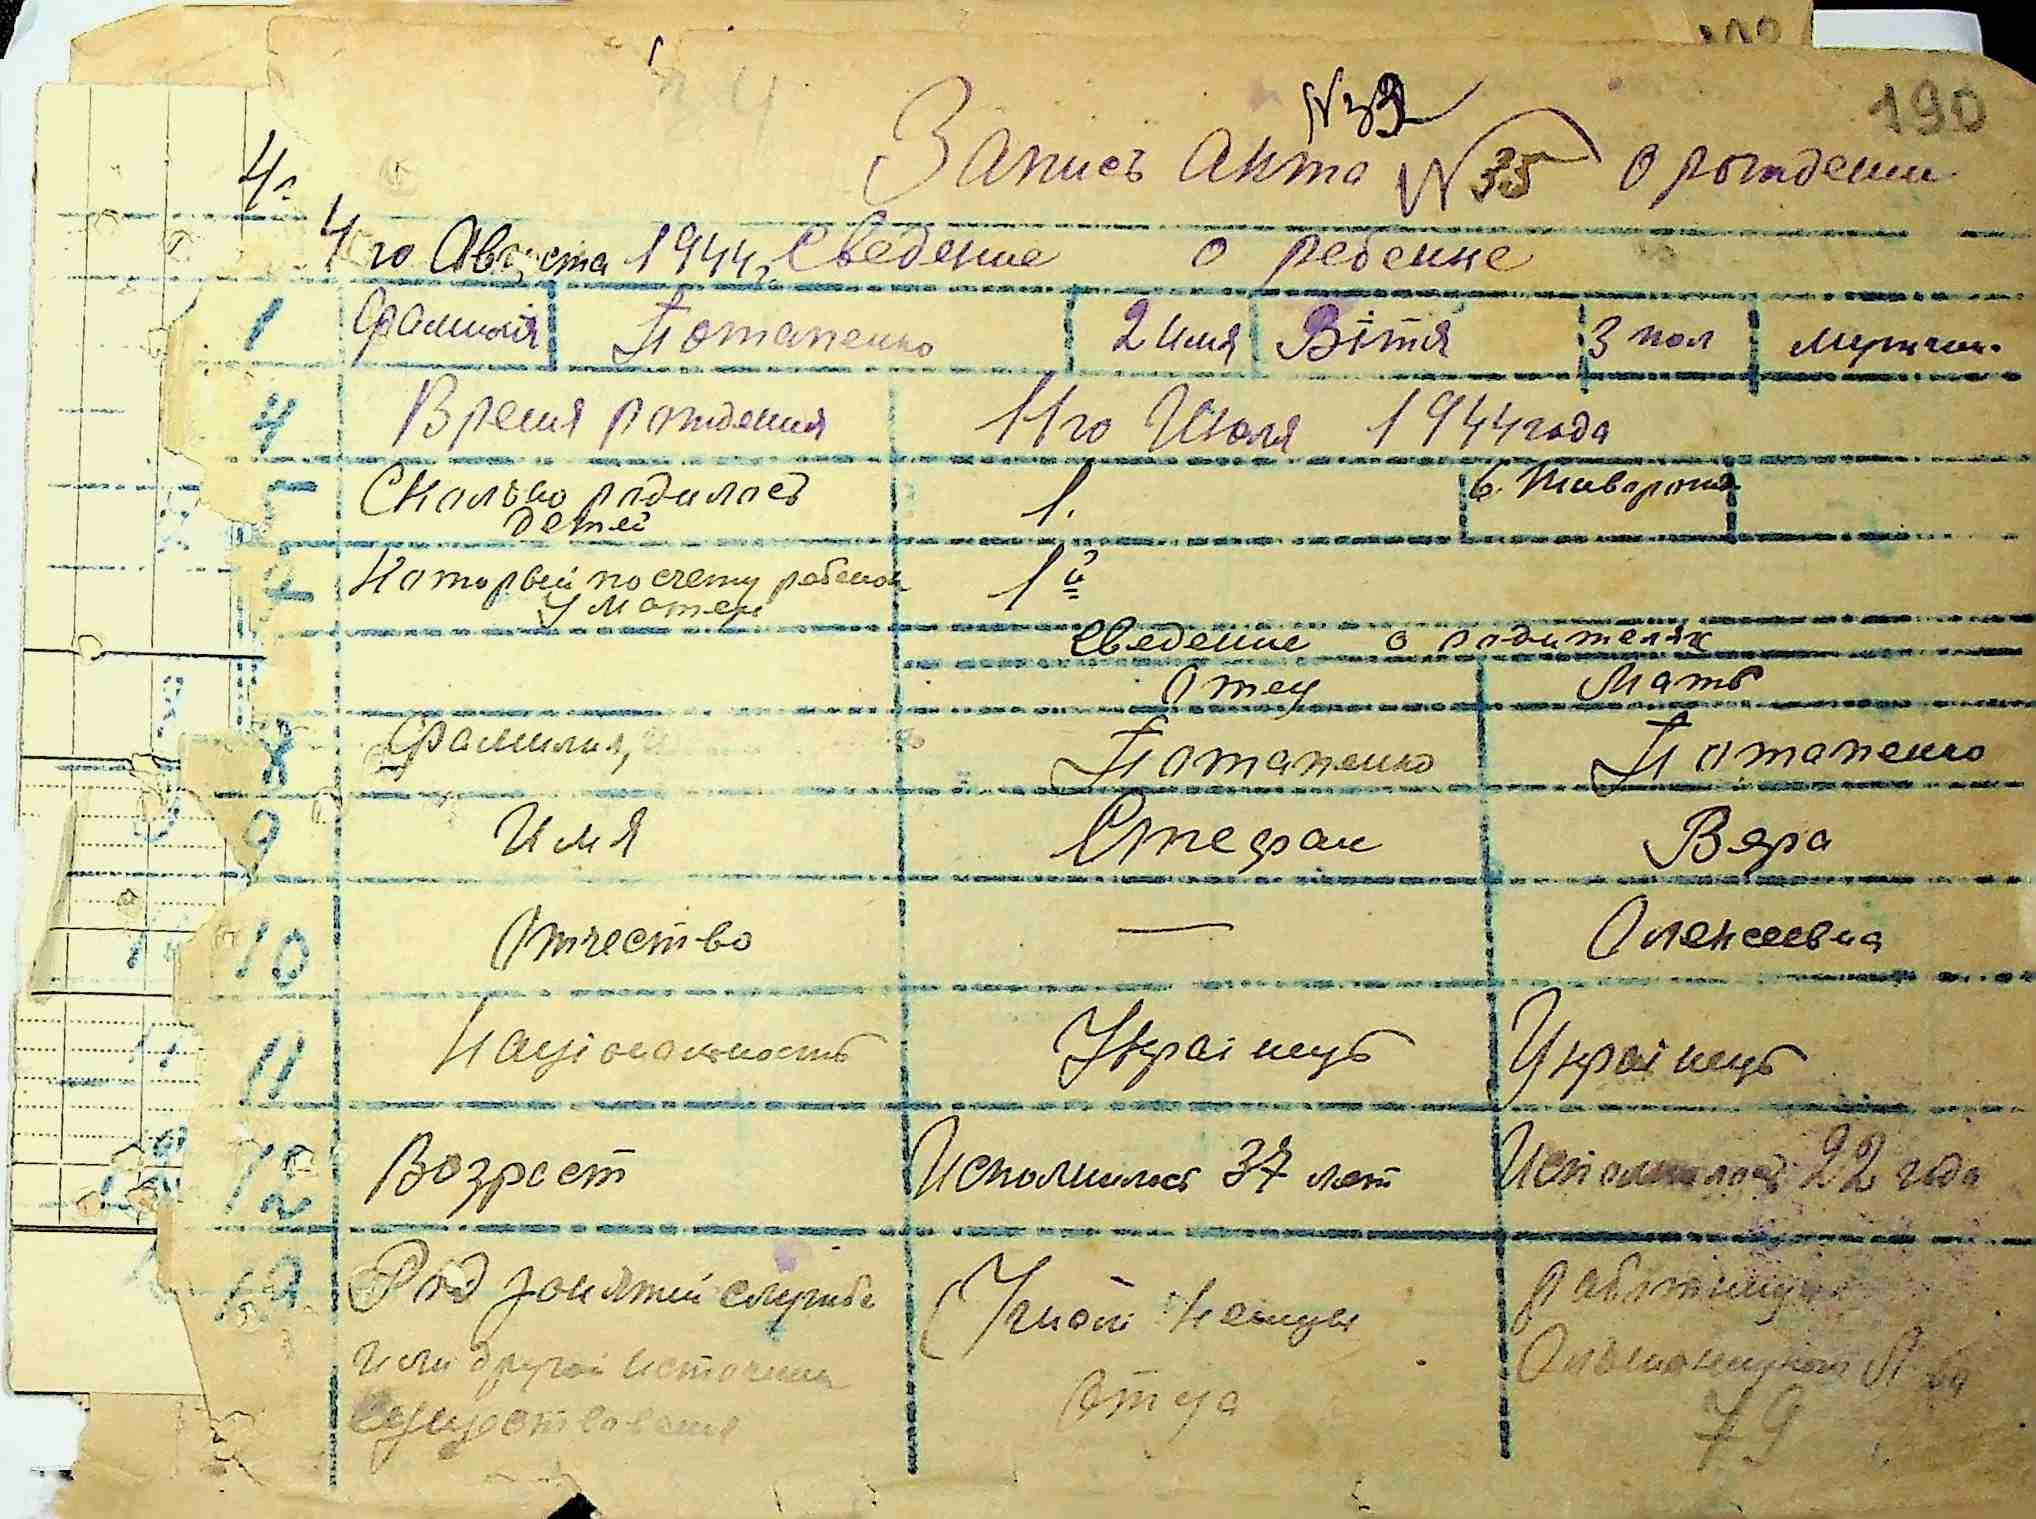 190
№ 39
Запись Акта № 35 о рождении
4го Августа 1944г Сведение о ребенке
1 Фамилия Потапенко 2 имя Вітя 3 пол мужчин.
4 Время рождения 11го Июля 1944 года
5 Сколько родилось 1. 6. Живорожд
детей
7 Который по счету ребенок 1й
у матери
Сведение о родителях
Отец Мать
8 Фамилия, Потапенко Потапенко
9 Имя Стефан Вера
10 Отчество — Олексеевна
11 Націоналность Українць Українць
12 Возрост Исполнилось 37 лет Исполнилось 22 года
Род занятий служба
или другой источник
существования отца
79